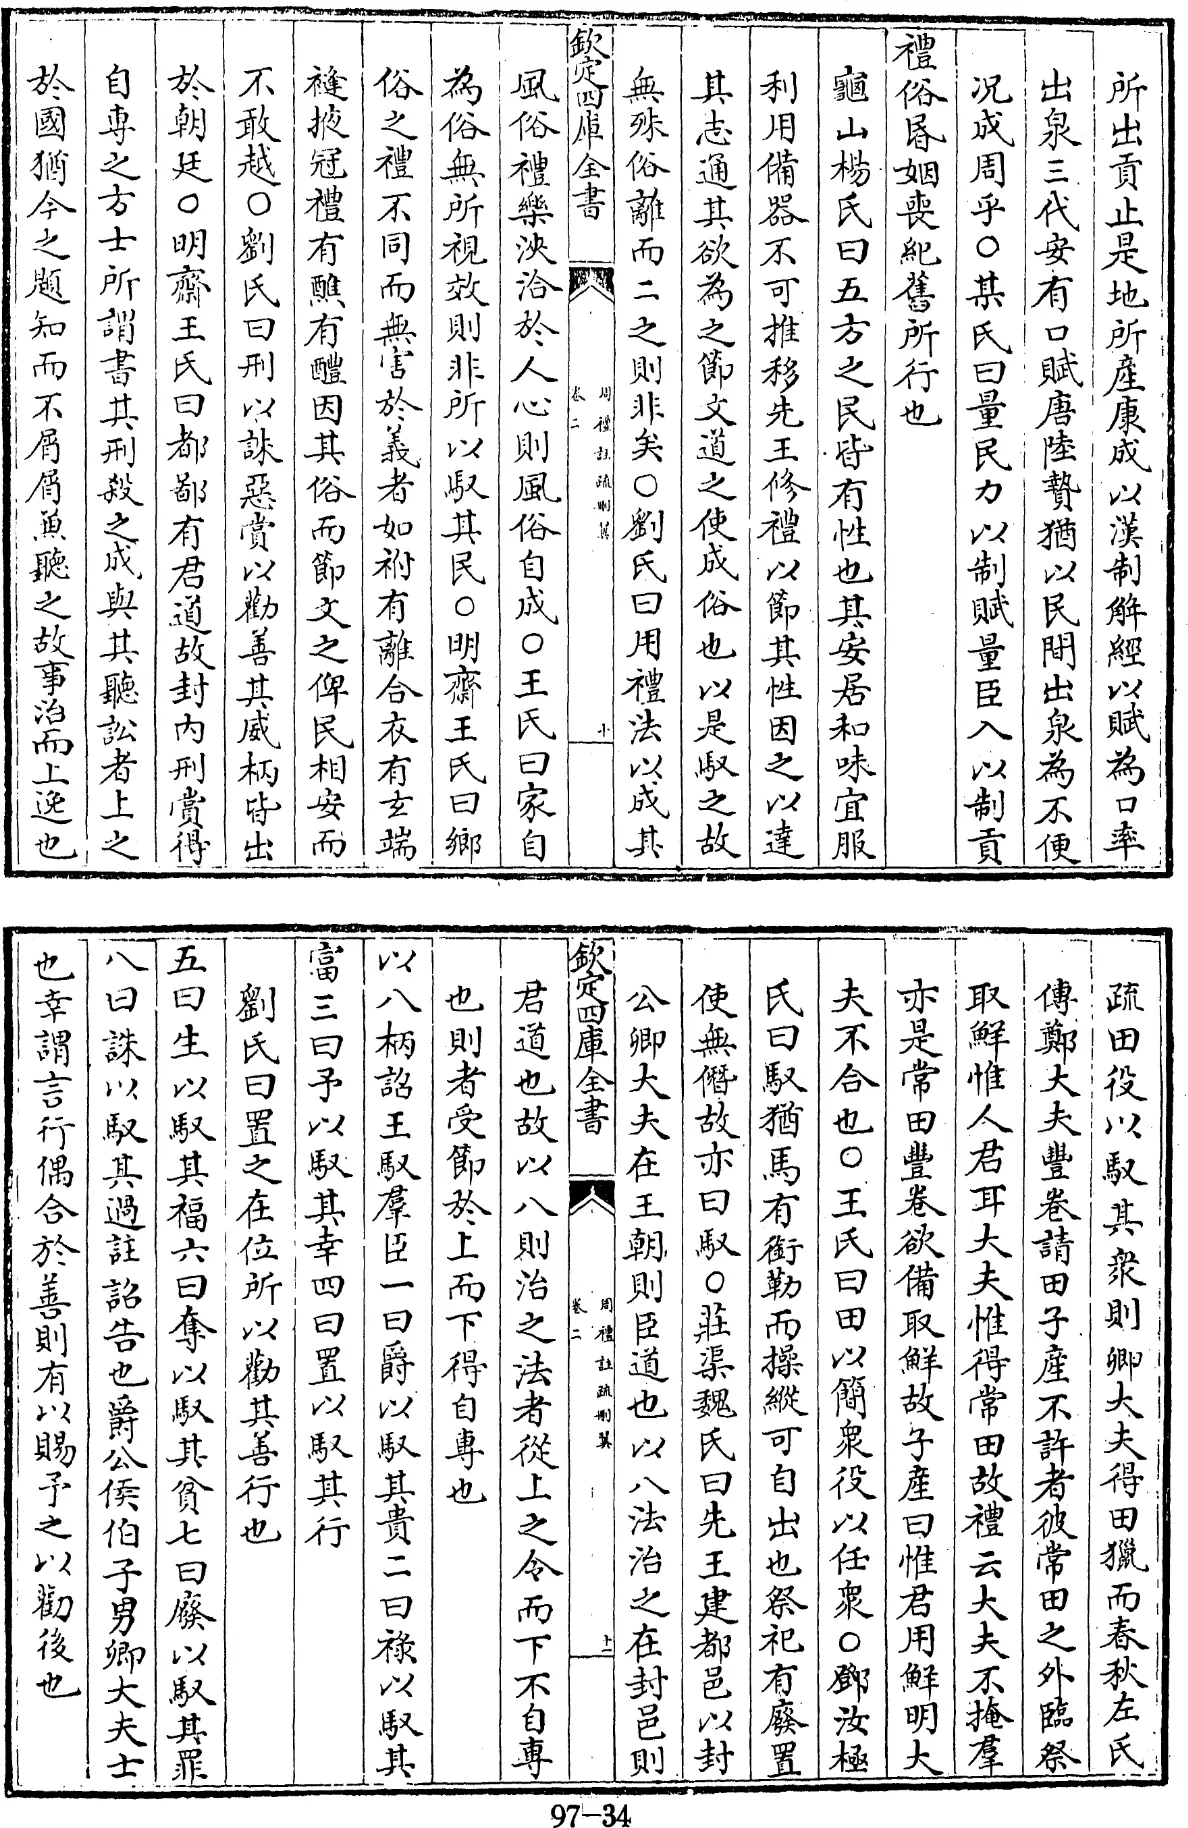 所出貢止是地所產康成以漢制解經以賦為口率
出泉三代安有口賦唐陸贄猶以民間出泉為不便
况成周乎○某氏曰量民力以制賦量臣入以制貢
禮俗昏姻喪紀舊所行也
龜山楊氏曰五方之民皆有性也其安居和味宜服
利用備器不可推移先王修禮以節其性因之以達
其志通其欲為之節文道之使成俗也以是馭之故
無殊俗離而二之則非矣○劉氏曰用禮法以成其
欽定四庫全書
周禮註疏刪翼
卷二
十
風俗禮樂浹洽於人心則風俗自成○王氏曰家自
為俗無所視效則非所以馭其民○明齋王氏曰鄉
俗之禮不同而無害於義者如祔有離合衣有玄端
褖掖冠禮有醮有醴因其俗而節文之俾民相安而
不敢越○劉氏曰刑以誅惡賞以勸善其威柄皆出
於朝廷○明齋王氏曰都鄙有君道故封内刑賞得
自專之方士所謂書其刑殺之成與其聽訟者上之
於國猶今之題知而不屑屑兼聽之故事治而上逸也
疏田役以馭其衆則卿大夫得田獵而春秋左氏
傳鄭大夫豐卷請田子產不許者彼常田之外臨祭
取鮮惟人君耳大夫惟得常田故禮云大夫不掩羣
亦是常田豐卷欲備取鮮故子產曰惟君用鮮明大
夫不合也○王氏曰田以簡衆役以任衆○鄧汝極
氏曰馭猶馬有銜勒而操縱可自出也祭祀有廢置
使無僭故亦曰馭○莊渠魏氏曰先王建都邑以封
公卿大夫在王朝則臣道也以八法治之在封邑則
欽定四庫全書
周禮註疏刪翼
卷二
十一
君道也故以八則治之法者從上之令而下不自專
也則者受節於上而下得自專也
以八柄詔王馭羣臣一曰爵以馭其貴二曰祿以馭其
富三曰予以馭其幸四曰置以馭其行
劉氏曰置之在位所以勸其善行也
五曰生以馭其福六曰奪以馭其貧七曰廢以馭其罪
八曰誅以馭其過註詔告也爵公侯伯子男卿大夫士
也幸謂言行偶合於善則有以賜予之以勸後也
97-34